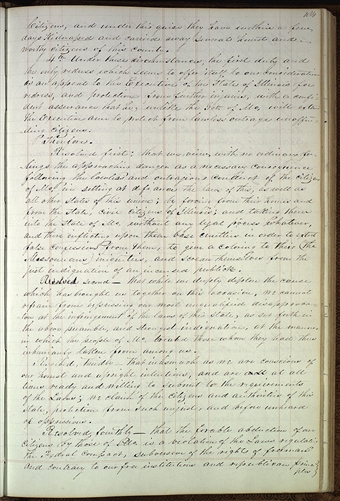 Citizens, and under this guise they have within a few
days kidnapped and carried away several honest and
worthy citizens of this County.
4th Under these circumstances, the first duty and
the only redress which seems to offer itself to our consideration
is an appeal to the Executive of the State of Illinois, for
redress, and protection from further injuries, with a confi-
dent assurance that he, unlike the Gov. of Mo. will extend
the Executive arm to protect from lawless outrage unoffen-
ding citizens.
Therefore
Resolved first; that we view with no ordinary fee-
lings the approaching danger as a necessary consequence
following the lawless and outrageous conduct of the Citizens
of Mo. in setting at defiance the laws of this, as well as
all other States of this union; by forcing from their homes and
from the State, civil citizens of Illinois; and taking them
into the State of Mo. without any legal process whatever
and there inflicting upon them base cruelties in order to extort
false confessions from them; to give a coloring to their (the
Missourians) iniquities, and screen themselves from the
just indignation of an incensed public.
Resolved second — that while we deeply deplore the cause
which has brought us together on this occasion, we cannot
refrain from expressing our most unqualified disapproba-
tion at the infringement of the laws of this State, as set forth in
the above preamble, and strongest indignation, at the manner
in which the people of Mo. treated those whom they had thus
inhumanly taken from among us.
Resolved, thirdly — that inasmuch as we are conscious of
our honest and upright intentions, and are at all
times ready and willing to submit to the requirements
of the Laws; we claim of the citizens and authorities of this
State, protection from such unjust and before unheard
of oppressions.
Resolved, fourthly — that the forcible abduction of our
Citizens by those of Mo. is a violation of the Laws regulating
the Federal Compact, subversive of the rights of freemen
and contrary to our free institutions and republican prin-
ciples